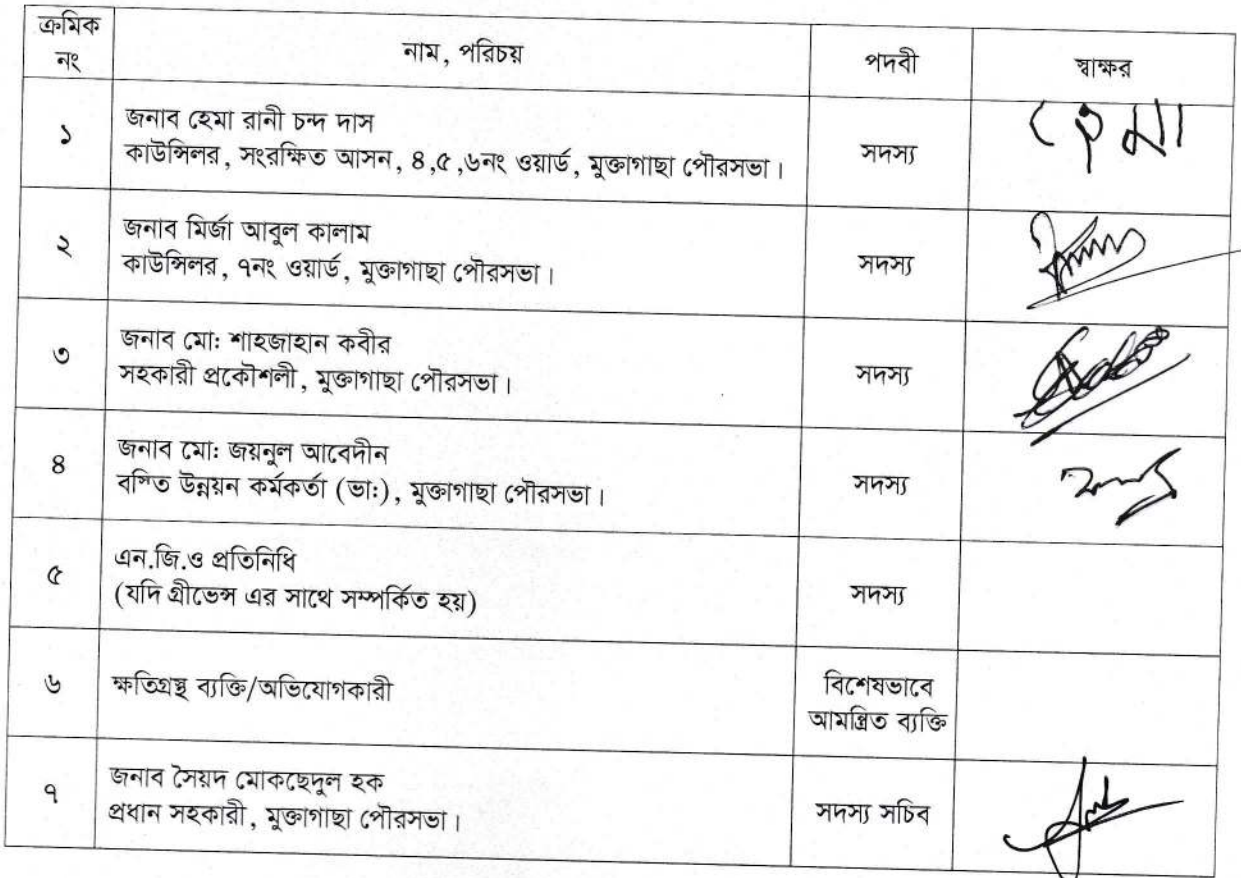 ক্রমিক
নং
নাম, পরিচয়
পদবী
স্বাক্ষর
১
জনাব হেমা রানী চন্দ দাস
কাউন্সিলর, সংরক্ষিত আসন, ৪,৫,৬নং ওয়ার্ড, মুক্তাগাছা পৌরসভা।
সদস্য
হেমা
২
জনাব মির্জা আবুল কালাম
কাউন্সিলর, ৭নং ওয়ার্ড, মুক্তাগাছা পৌরসভা।
সদস্য
৩
জনাব মো: শাহজাহান কবীর
সহকারী প্রকৌশলী, মুক্তাগাছা পৌরসভা।
সদস্য
৪
জনাব মো: জয়নুল আবেদীন
বস্তি উন্নয়ন কর্মকর্তা (ভা:), মুক্তাগাছা পৌরসভা।
সদস্য
৫
এন.জি.ও প্রতিনিধি
(যদি গ্রীভেন্স এর সাথে সম্পর্কিত হয়)
সদস্য
৬
ক্ষতিগ্রস্থ ব্যক্তি/অভিযোগকারী
বিশেষভাবে
আমন্ত্রিত ব্যক্তি
৭
জনাব সৈয়দ মোকছেদুল হক
প্রধান সহকারী, মুক্তাগাছা পৌরসভা।
সদস্য সচিব